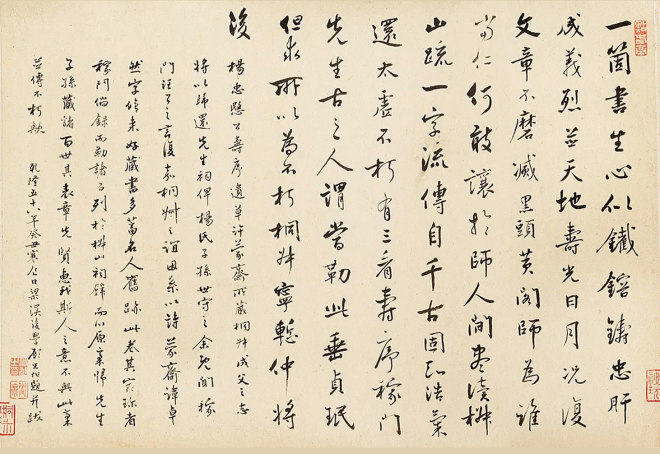 一箇書生心似鐵鎔鑄忠肝
成義烈並天地壽光日月況復
文章不磨滅黑頭黃閣師為誰
當仁何敢讓於師人間盡讀椒
山疏一字流傳自千古固知浩氣
還太虛不朽有三看壽序稼門
先生古之人謂當勒此垂貞珉
但求所以為不朽桐艸寧慙仲將
後
楊忠愍公壽序遺草許蒙齋所藏桐艸成父之志
將以歸還先生祠俾楊氏子孫世守之余既聞稼
門汪公之言復素桐艸之誼因系以詩蒙齋諱卓
然字 來好藏書多蓄名人舊跡此卷其家珍者
稼門 錄而勒諸石列於椒山祠 而以原稾歸先生
子孫藏諸百世其表章先賢惠我斯人之意不與此稾
並傳不朽歟
乾隆五十八年癸丑寒食日梁溪後學 光旭題并跋